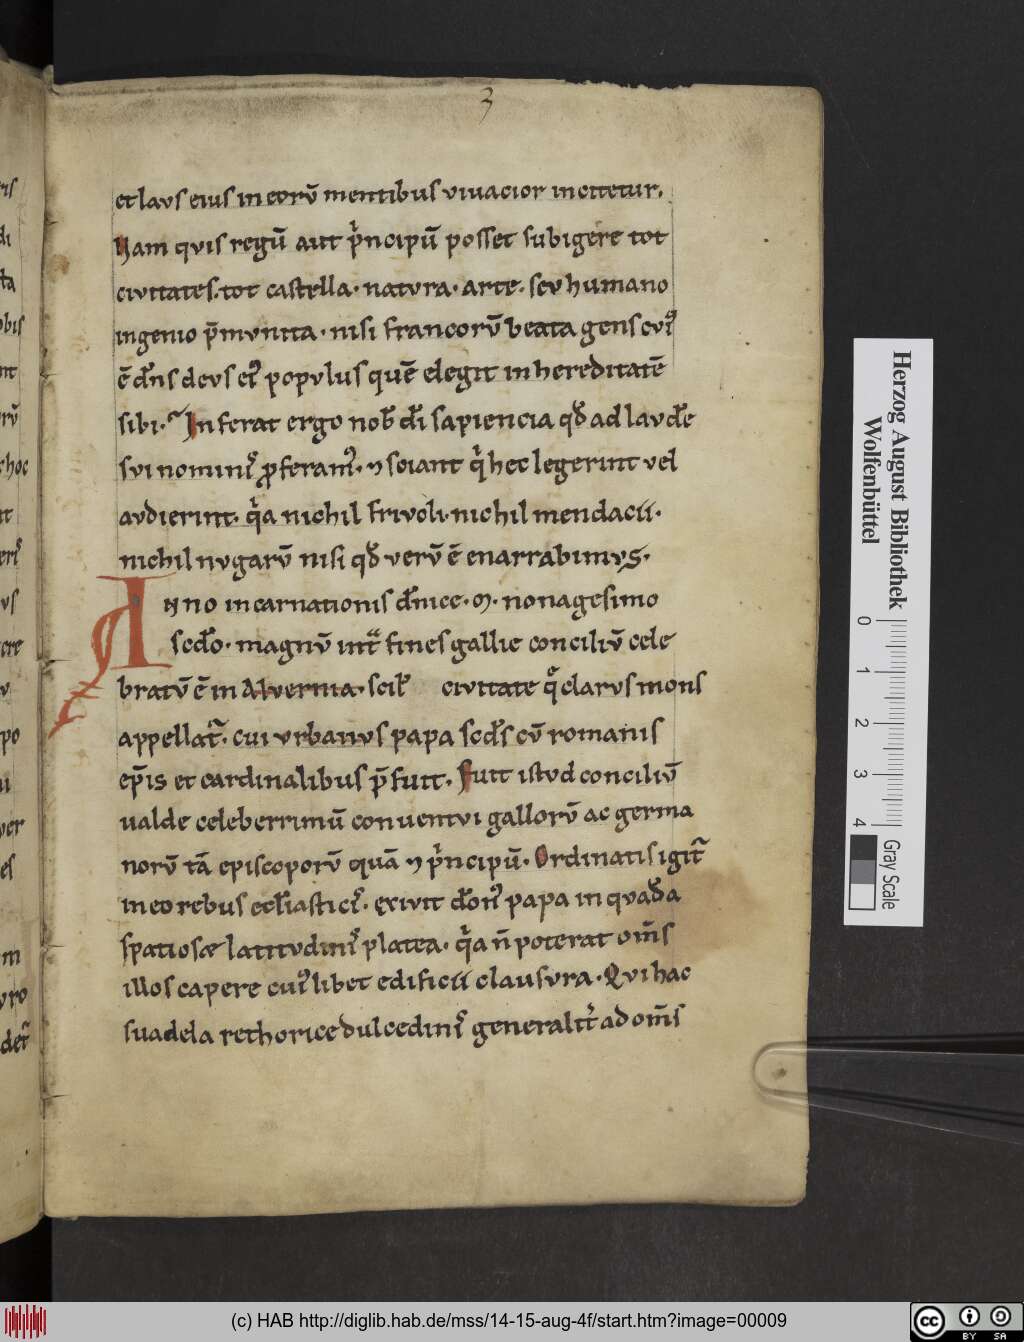 3
et lavs eius in eorū mentibus viuacior incitetur.
Nam qvis regū aut p̍ncipū posset subigere tot
civitates. tot castella. natvra. arte. sev humano
ingenio p̄mvnita. nisi francorū beata gens cvi᷒
ē dn̄s devs ei᷒ popvlus quē elegit in hereditatē
sibi. Inferat ergo nob̄ dī sapiencia qd̄ ad lavdē
svi nomini᷒ ꝓferam᷒. ⁊ sciant q̍ hec legerint vel
avdierint. q̍a nichil frivoli. nichil mendacii.
nichil nvgarū nisi qd̄ verū ē enarrabimvs.
ANno incarnationis dn̄ice. M. nonagesimo
scd̄o. magnū int̄ fines gallie conciliū cele
bratū ē in Alvernia. scil̄ civitate q̄ clarvs mons
appellat᷑. cui vrbanvs papa scd̄s cū romanis
ep̄is et cardinalibus p̄fuit. Fuit istvd conciliū
ualde celeberrimū conuentvi gallorū ac germa
norū tā episcoporū quā ⁊ p̍ncipū. Ordinatis igit᷑
in eo rebus eccl̄iastici᷒. exivit dōn᷒ papa in qvadā
spatiosæ latitvdini᷒ platea. q̍a n̄ poterat om̄s
illos capere cui᷒libet edificii clausvra. Qvi hac
suadela rethorice dulcedini᷒ generalit̍ ad om̄s
Herzog August Bibliothek
Wolfenbüttel
0 1 2 3 4
Gray Scale
(c) HAB http://diglib.hab.de/mss/14-15-aug-4f/start.htm?image=00009
cc BY SA